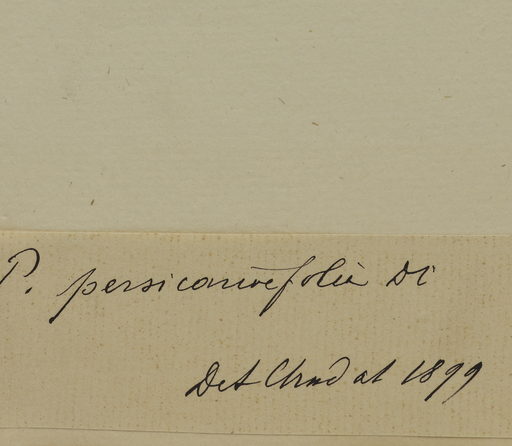 P. persicariæfolia DC
Det Chodat 1899